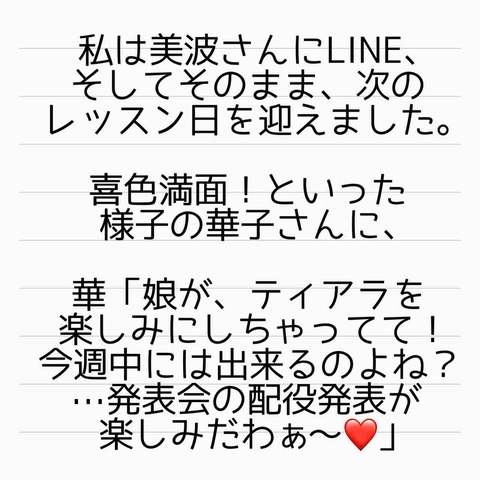 私は美波さんにLINE、
そしてそのまま、次の
レッスン日を迎えました。
喜色満面！といった
様子の華子さんに、
華「娘が、ティアラを
楽しみにしちゃってて！
今週中には出来るのよね？
…発表会の配役発表が
楽しみだわぁ〜❤️」